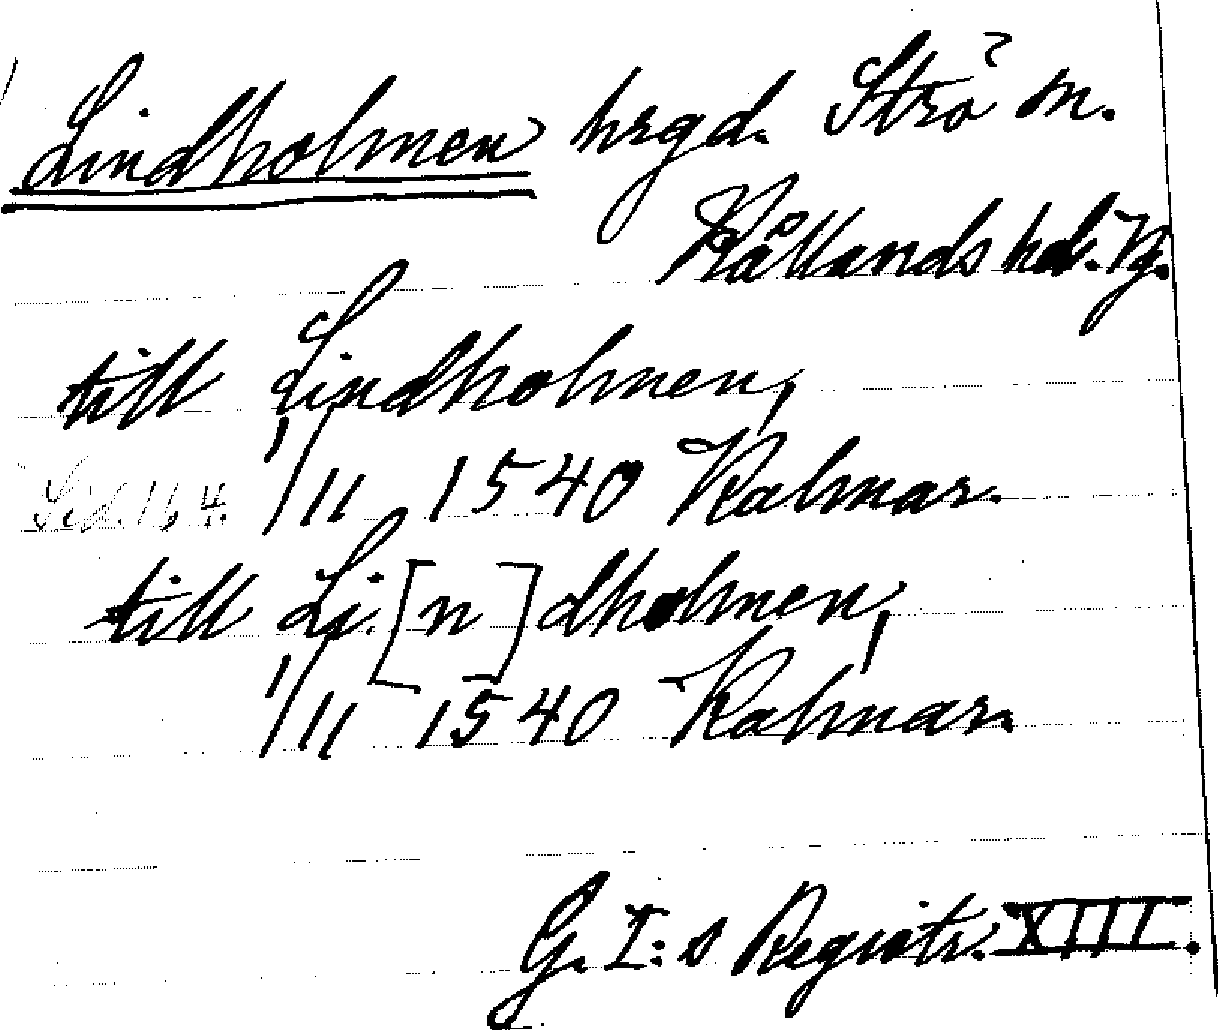 Lindholmen hrgd. Strö sn.
Kållands hd. Vg.
till Lindholmen,
Sid. 164. 1/11 1540 Kalmar.
till Li[n]dholmen,
1/11 1540 Kalmar.
G. I:s Registr. XIII.